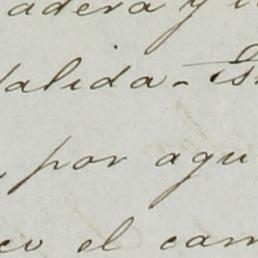 adera y
alida - 
, por agu
co el cam